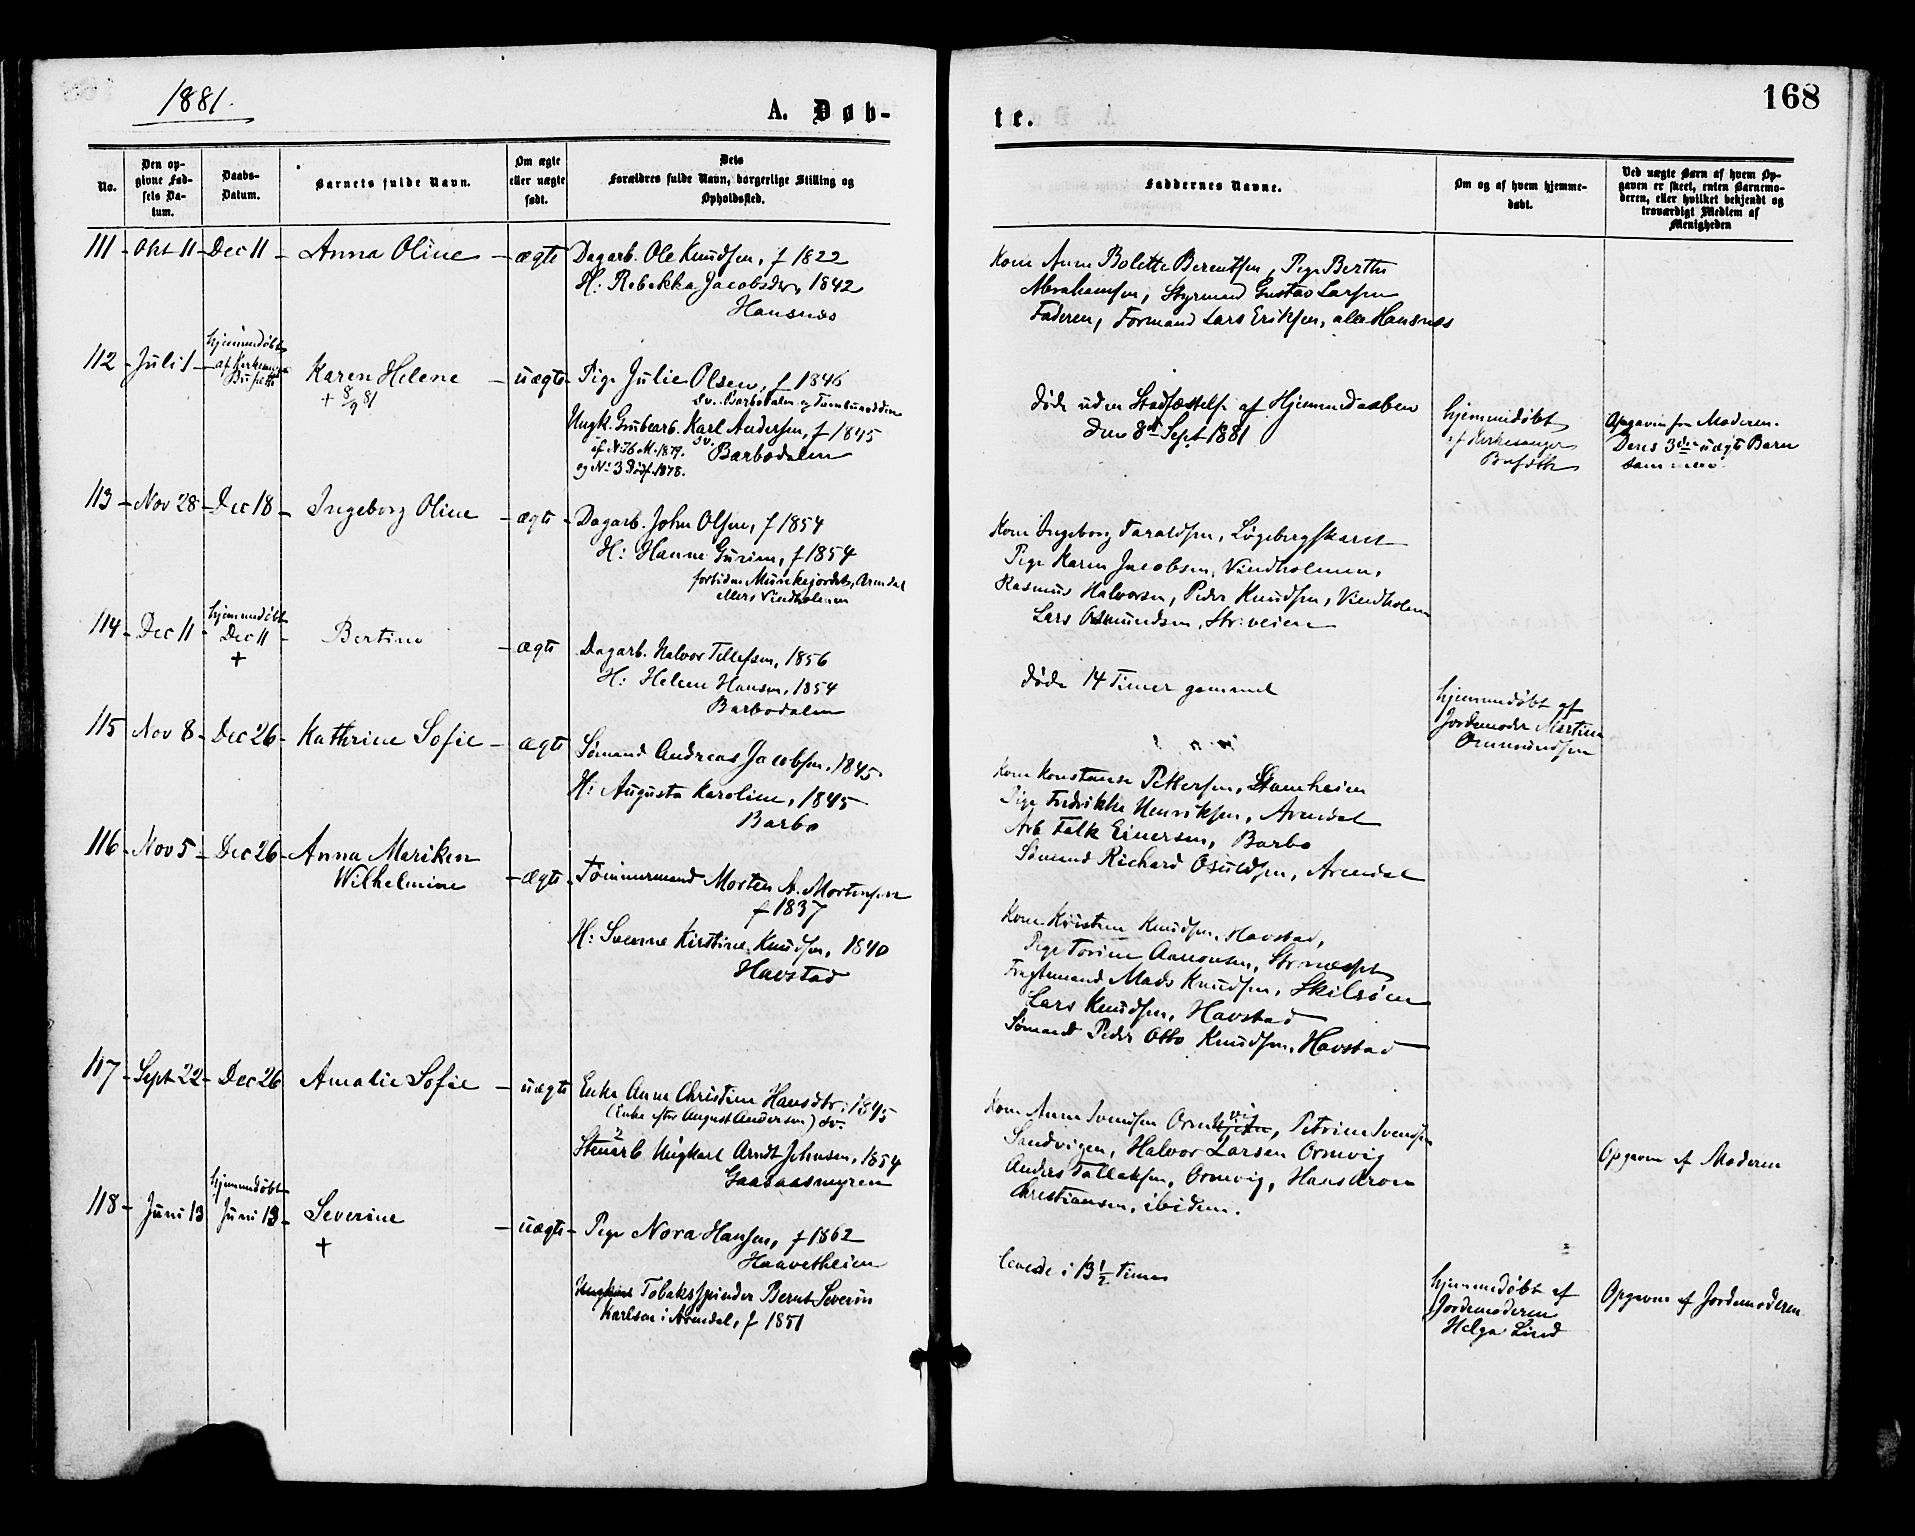 1881.
A. Døb-
No.
Den op-
givne Fød-
sels Da-
tum.
Daabs-
Datum.
Barnets fulde Navn.
Om ægte
eller uægte
født.
Dets
Forældres fulde Navn, borgerlige Stilling og
Opholdssted.
111 - Okt 11 - Dec 11 - Anna Oline - ægte
Dagarb. Ole Knudsen, f 1822
H: Rebekka Jacobsdr, 1842
Hansnæs
112 - Juli 1 - hjemmedøbt
af Kirkesanger
Karen Helene - uægte -
+ 8/9 81
Pige Julie Olsen, f 1846
sv. Barbodalen og
Ungk. Grubearb. Karl Andersen, f 1845
sv. Barbodalen
cf No 76 M. 1879.
og No 3 Døpf. 1878.
113 - Nov 28 - Dec 18 - Ingeborg Oline - ægte -
Dagarb. John Olsen, f 1854
H: Hanne Gurine, f 1854
fortiden Munkejordet, Arendal
ellers Vindholmen
114 - Dec 11 - hjemmedøbt
Dec 11 -
+
Bertine - ægte
Dagarb. Halvor Tellefsen, 1856
H: Helene Hansen, 1854
Barbodalen
115 - Nov 8 - Dec 26 - Kathrine Sofie - ægte
Sømand Andreas Jacobsen, 1845
H: Augusta Karoline, 1845
Barbo
116 - Nov 5 - Dec 26 - Anna Mariken
Wilhelmine - ægte
Tømmermand Morten A. Mortensen
f 1837
H: Severine Kirstine Knudsen, 1840
Havstad
117 - Sept 22 - Dec 26 Amalie Sofie - uægte
Enke Anne Christine Hansdtr. 1845
(Enke efter August Andersen) sv.
Stenarb Ungkarl Arndt Johnsen, 1854
Gaasaasmyren
118 - Juni 13 hjemmedøbt
Juni 13 - Severine - uægte -
+
Pige Nora Hansen, f 1862
Haavetheien
Ungkarl Tobaksspinder Bernt Severin
Karlsen i Arendal, f 1851
168
te.
Faddernes Navne.
Om og af hvem hjemme-
døbt.
Ved uægte Børn af hvem Op-
gaven er skeet, enten Barnemo-
deren, eller hvilket bekjendt og
troværdigt Medlem af
Menigheden
Kone Anne Bolette Berentsen, Pige Berthe
Abrahamsen, Styrmand Gustav Larsen
Faderen, Formand Lars Eriksen, alle Hansnæs
døde uden Stadfæstelse af Hjemmedaaben
den 8de Sept 1881
hjemmedøbt
af Kirkesanger
Opgaven fra Moderen.
Deres 3die uægte Barn
sammen.
Kone Ingeborg Taraldsen, Løgebergskaret
Pige Karen Jacobsen, Vindholmen,
Rasmus Halvorsen, Peder Knudsen, Vindholmen
Lars Osmundsen, Strveien
døde 14 Timer gammel
hjemmedøbt af
Jordemoder Martine
Ommundsen
Kone Konstanse Pettersen,
Pige Fredrikke Henriksen, Arendal
Arb Falk Einersen, Barbo
Sømand Richard Osuldsen, Arendal
Kone Kristine Knudsen, Havstad,
Pige Torine Aanonsen,
Fragtemand Mads Knudsen, Skilsøen
Lars Knudsen, Havstad
Sømand Peder Otto Knudsen, Havstad
Kone Anne Svendsen Ormvig, Petrine Svendsen
Sandvigen, Halvor Larsen Ormvig
Anders Tallaksen, Ormvig, Hans Aron
Christiansen, ibidem.
Opgaven af Moderen
levede i 13 1/2 Time
hjemmedøbt af
Jordemoderen
Helga Lind
Opgaven af Jordemoderen